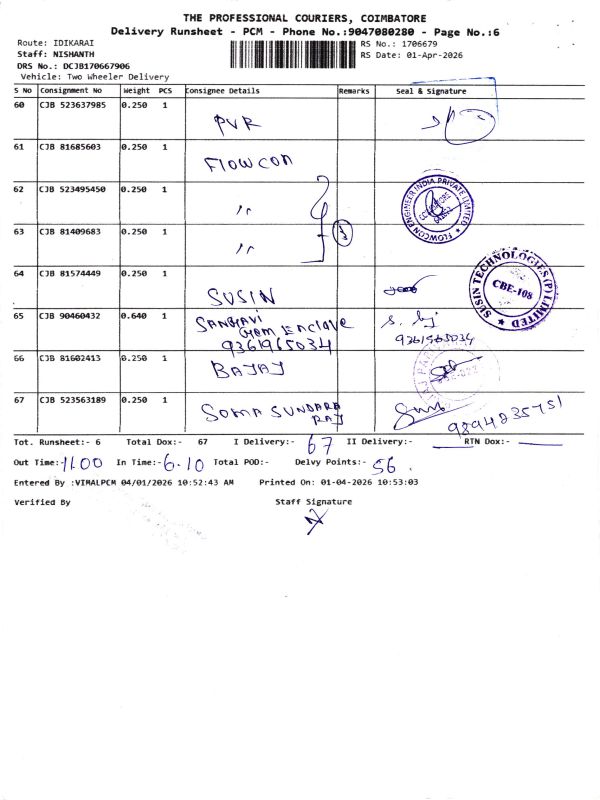 THE PROFESSIONAL COURIERS, COIMBATORE
Delivery Runsheet - PCM - Phone No.:9047080280 - Page No.:6
Route: IDIKARAI
RS No.: 1706679
Staff: NISHANTH
RS Date: 01-Apr-2026
DRS No.: DCJB170667906
Vehicle: Two Wheeler Delivery
S No Consignment No Weight PCS Consignee Details Remarks Seal & Signature
60 CJB 523637985 0.250 1 PVR
61 CJB 81685603 0.250 1 Flowcon
62 CJB 523495450 0.250 1 〃
FLOWCON ENGINEER INDIA PRIVATE LIMITED
63 CJB 81409683 0.250 1 〃 3
64 CJB 81574449 0.250 1 SUSIN
SUSIN TECHNOLOGIES (P) LIMITED
CBE-108
65 CJB 90460432 0.640 1 SANGHAVI
GEM ENCLAVE
9361965034 9361965034
66 CJB 81602413 0.250 1 BAJAJ
67 CJB 523563189 0.250 1 SOMA SUNDARA
RAJ 9894235751
Tot. Runsheet:- 6 Total Dox:- 67 I Delivery:- 67 II Delivery:- RTN Dox:-
Out Time:- 11.00 In Time:- 6.10 Total POD:- Delvy Points:- 56.
Entered By :VIMALPCM 04/01/2026 10:52:43 AM Printed On: 01-04-2026 10:53:03
Verified By Staff Signature